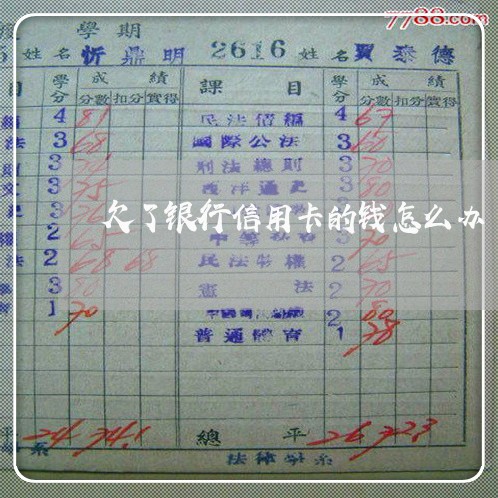 7788.com
學期
姓名 忻鼎明 2616 姓名 賈泰德
目 學分 成績 課目 學分 成績
分數 扣分 實得 分數 扣分 實得
4 81 民法債編 4 67
法 3 68 國際公法 3 60
3 刑法總則 3 70
3 75 西洋通史 3 80
欠了银行信用卡的钱怎么办
2 3 70
法 2 68 68 民法物權 2 65
3 80 憲法 2 70
1 70 2 80
普通體育 1 78
平 24 74.1 總平 26 72.3
系 法律學系